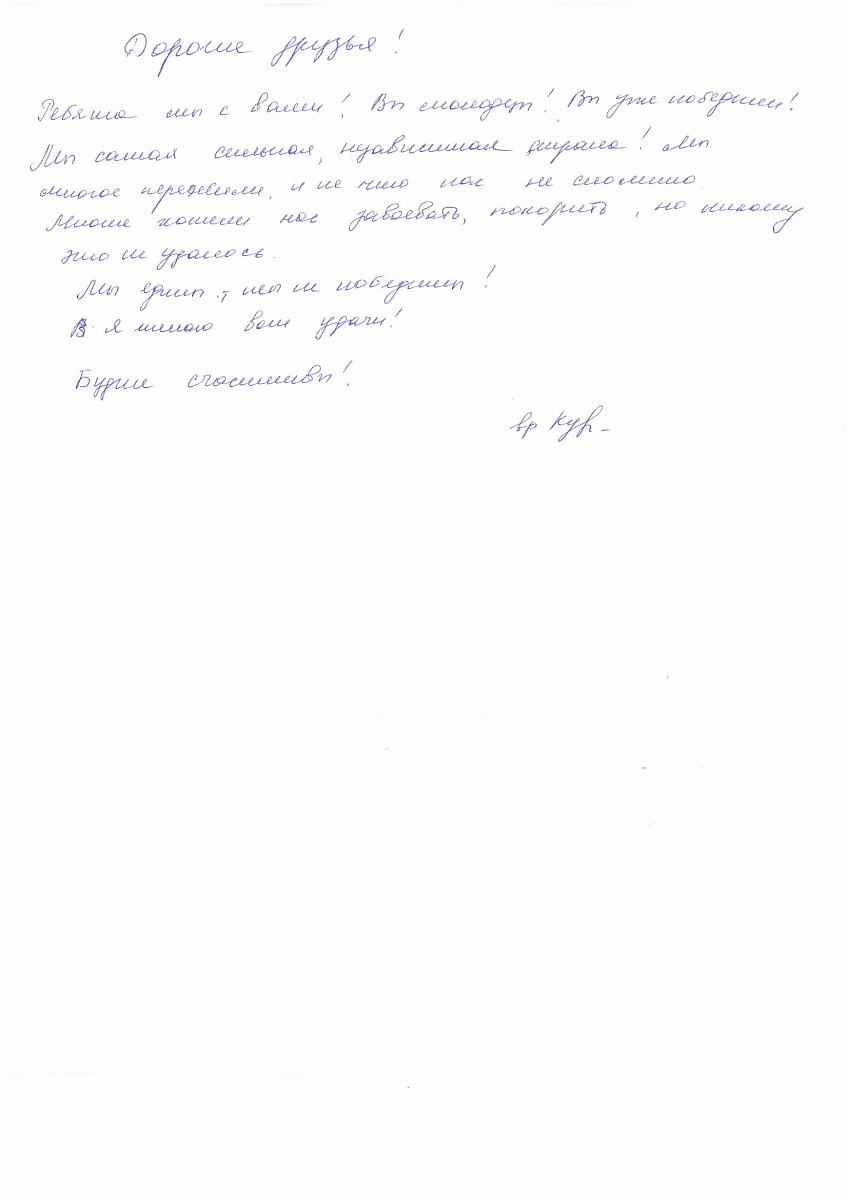 Дорогие друзья!
Ребята мы с вами! Вы молодцы! Вы уже победили!
Мы самая сильная, независимая страна! Мы
многое пережили, и не что нас не сломило.
Многие хотели нас завоевать, покорить, но никому
это не удалось.
Мы едины, мы не победимы!
В Я желаю вам удачи!
Будьте счастливы!
вр